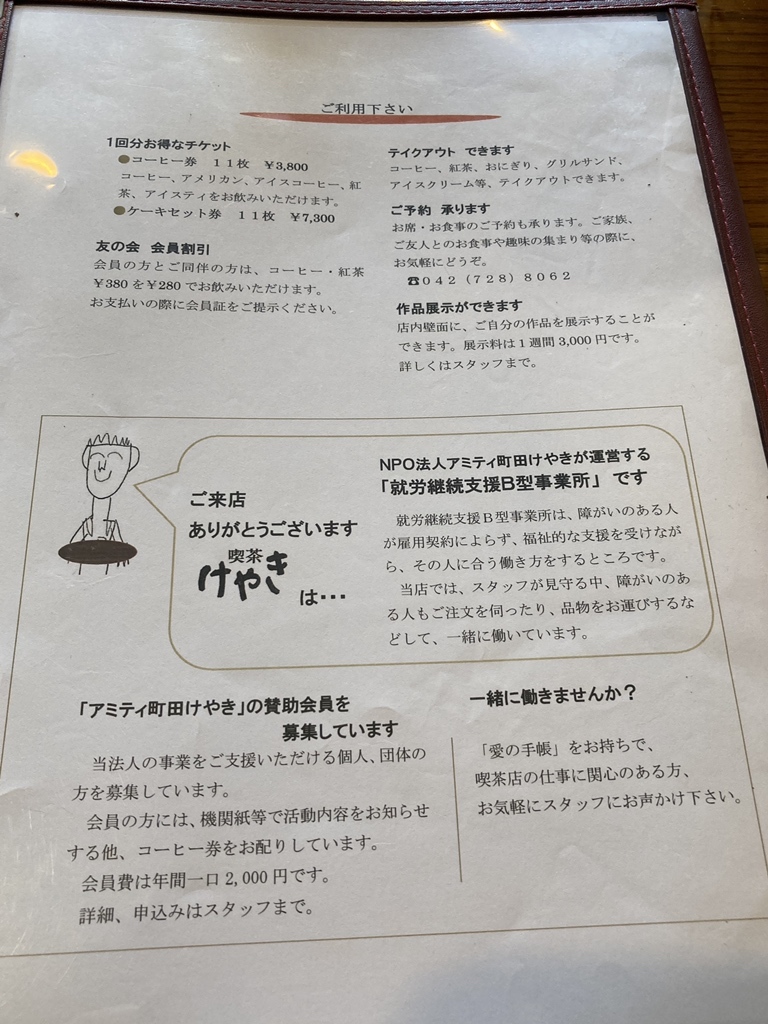 ご利用下さい
1回分お得なチケット
●コーヒー券 11枚 ¥3,800
コーヒー、アメリカン、アイスコーヒー、紅
茶、アイスティをお飲みいただけます。
●ケーキセット券 11枚 ¥7,300
友の会 会員割引
会員の方とご同伴の方は、コーヒー・紅茶
¥380を¥280でお飲みいただけます。
お支払いの際に会員証をご提示ください。
テイクアウト できます
コーヒー、紅茶、おにぎり、グリルサンド、
アイスクリーム等、テイクアウトできます。
ご予約 承ります
お席・お食事のご予約も承ります。ご家族、
ご友人とのお食事や趣味の集まり等の際に、
お気軽にどうぞ。
☎042(728)8062
作品展示ができます
店内壁面に、ご自分の作品を展示することが
できます。展示料は1週間3,000円です。
詳しくはスタッフまで。
ご来店
ありがとうございます
喫茶
けやき
は・・・
NPO法人アミティ町田けやきが運営する
「就労継続支援B型事業所」です
就労継続支援B型事業所は、障がいのある人
が雇用契約によらず、福祉的な支援を受けなが
ら、その人に合う働き方をするところです。
当店では、スタッフが見守る中、障がいのあ
る人もご注文を伺ったり、品物をお運びするな
どして、一緒に働いています。
「アミティ町田けやき」の賛助会員を
募集しています
当法人の事業をご支援いただける個人、団体の
方を募集しています。
会員の方には、機関紙等で活動内容をお知らせ
する他、コーヒー券をお配りしています。
会員費は年間一口2,000円です。
詳細、申込みはスタッフまで。
一緒に働きませんか?
「愛の手帳」をお持ちで、
喫茶店の仕事に関心のある方、
お気軽にスタッフにお声かけ下さい。